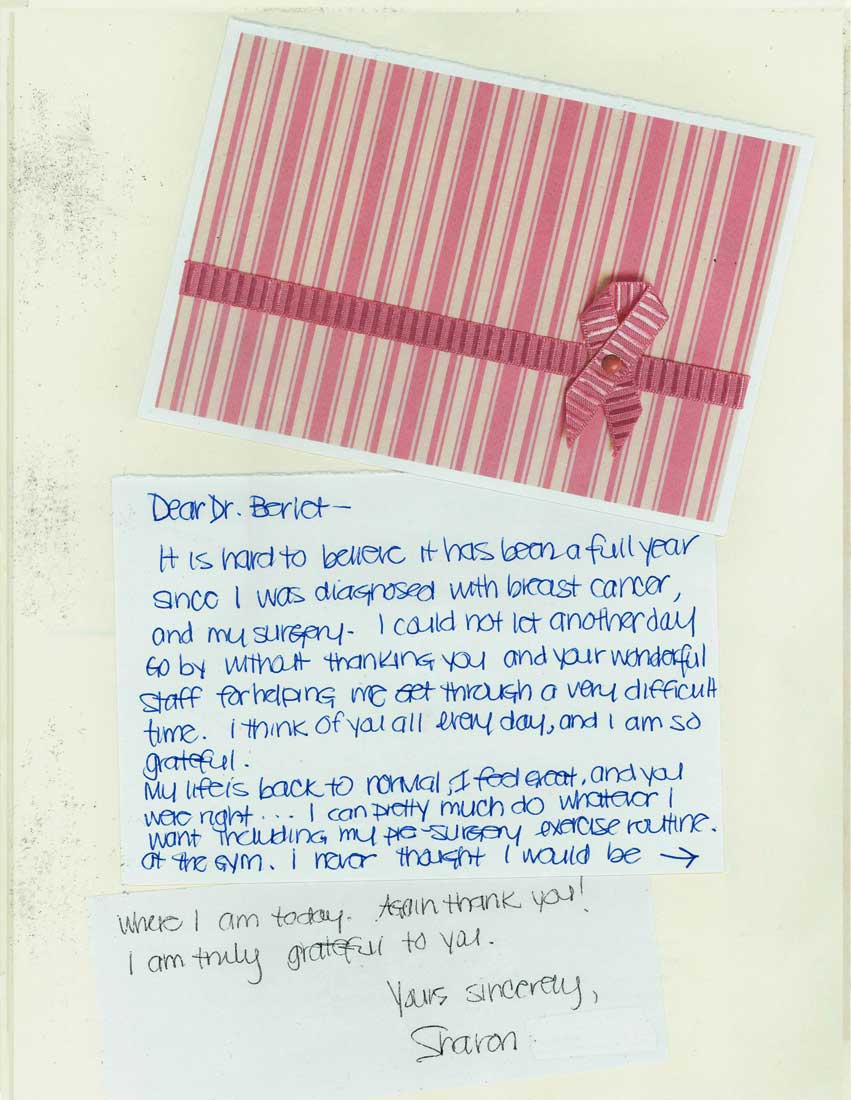 Dear Dr. Berlet—
It is hard to believe it has been a full year
since I was diagnosed with breast cancer,
and my surgery. I could not let another day
go by without thanking you and your wonderful
staff for helping me get through a very difficult
time. I think of you all every day, and I am so
grateful.
My life is back to normal, I feel great, and you
were right... I can pretty much do whatever I
want including my pre-surgery exercise routine.
at the gym. I never thought I would be →
where I am today. Again thank you!
I am truly grateful to you.
Yours sincerely,
Sharon